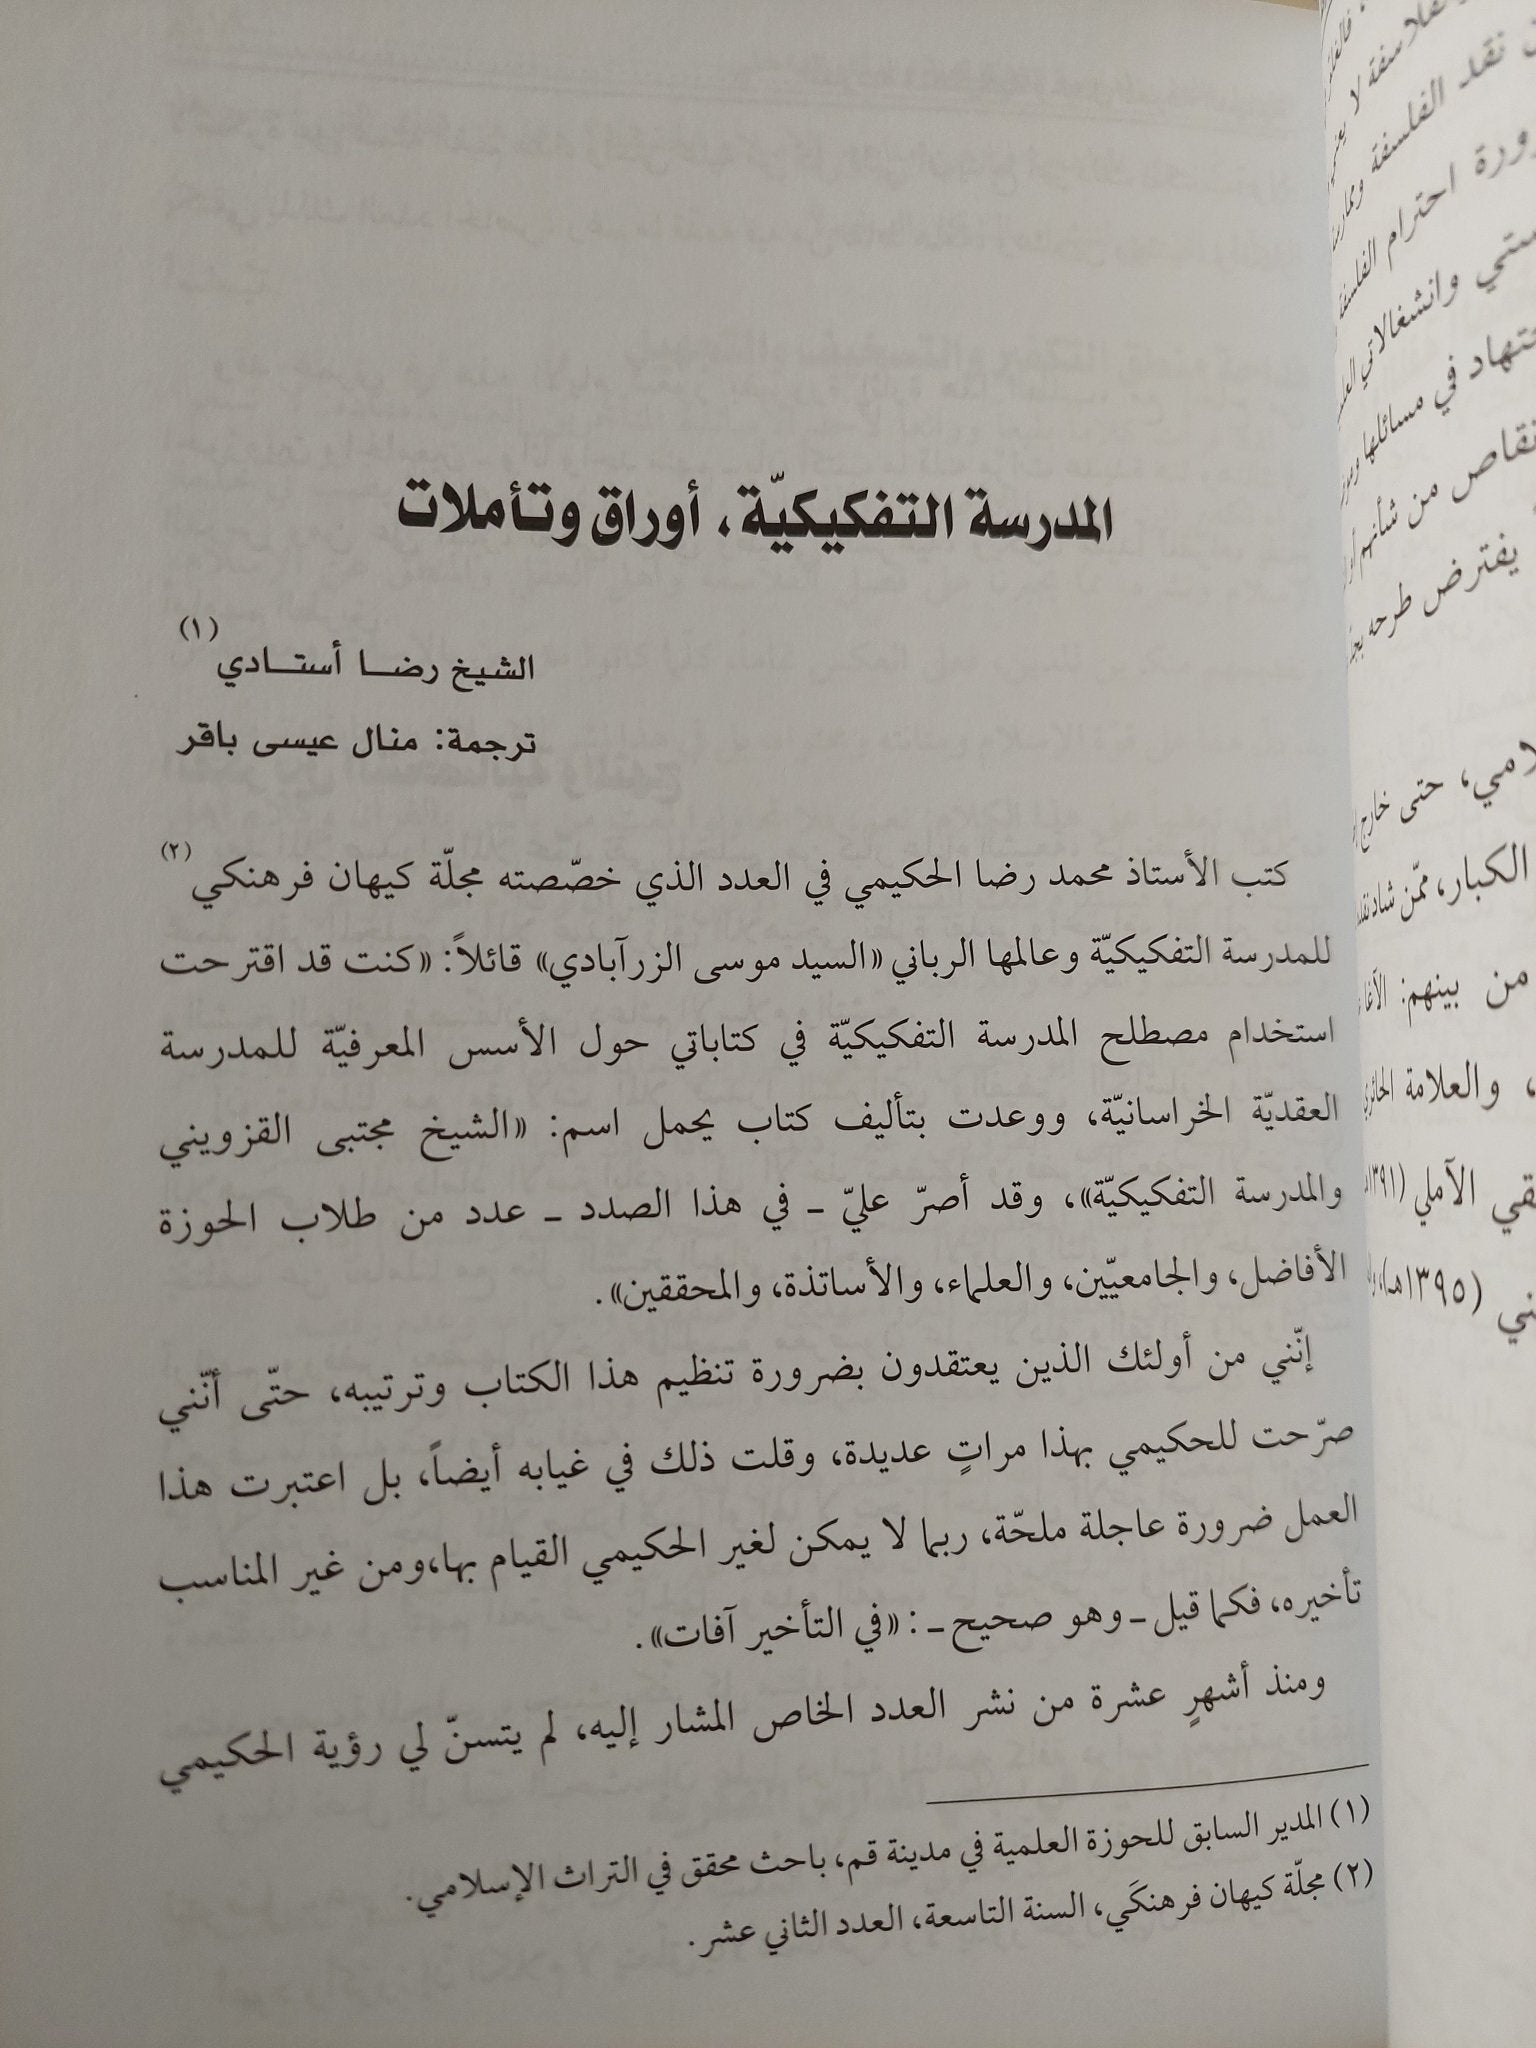 المدرسة التفكيكيّة، أوراق وتأملات
الشيخ رضـا أستـادي (١)
ترجمة: منال عيسى باقر
كتب الأستاذ محمد رضا الحكيمي في العدد الذي خصّصته مجلّة كيهان فرهنكي (٢)
للمدرسة التفكيكيّة وعالمها الرباني «السيد موسى الزرآبادي» قائلاً: «كنت قد اقترحت
استخدام مصطلح المدرسة التفكيكيّة في كتاباتي حول الأسس المعرفيّة للمدرسة
العقديّة الخراسانيّة، ووعدت بتأليف كتاب يحمل اسم: «الشيخ مجتبى القزويني
والمدرسة التفكيكيّة»، وقد أصرّ عليّ ـ في هذا الصدد ـ عدد من طلاب الحوزة
الأفاضل، والجامعيّين، والعلماء، والأساتذة، والمحققين».
إنّني من أولئك الذين يعتقدون بضرورة تنظيم هذا الكتاب وترتيبه، حتّى أنّني
صرّحت للحكيمي بهذا مراتٍ عديدة، وقلت ذلك في غيابه أيضاً، بل اعتبرت هذا
العمل ضرورة عاجلة ملحّة، ربما لا يمكن لغير الحكيمي القيام بها،ومن غير المناسب
تأخيره، فكما قيل ـ وهو صحيح ـ : «في التأخير آفات».
ومنذ أشهرٍ عشرة من نشر العدد الخاص المشار إليه، لم يتسنّ لي رؤية الحكيمي
(١) المدير السابق للحوزة العلمية في مدينة قم، باحث محقق في التراث الإسلامي.
(٢) مجلّة كيهان فرهنكَي، السنة التاسعة، العدد الثاني عشر.
نقد الفلسفة
احترام الفلسفة
وانشغالاتي
في مسائلها
من شأنهم
يفترض طرحه
حتى خارج
الكبار، ممّن شاد
من بينهم: الآغا
، والعلامة الحائري
الآملي (١٣٩١
(١٣٩٥هـ)،